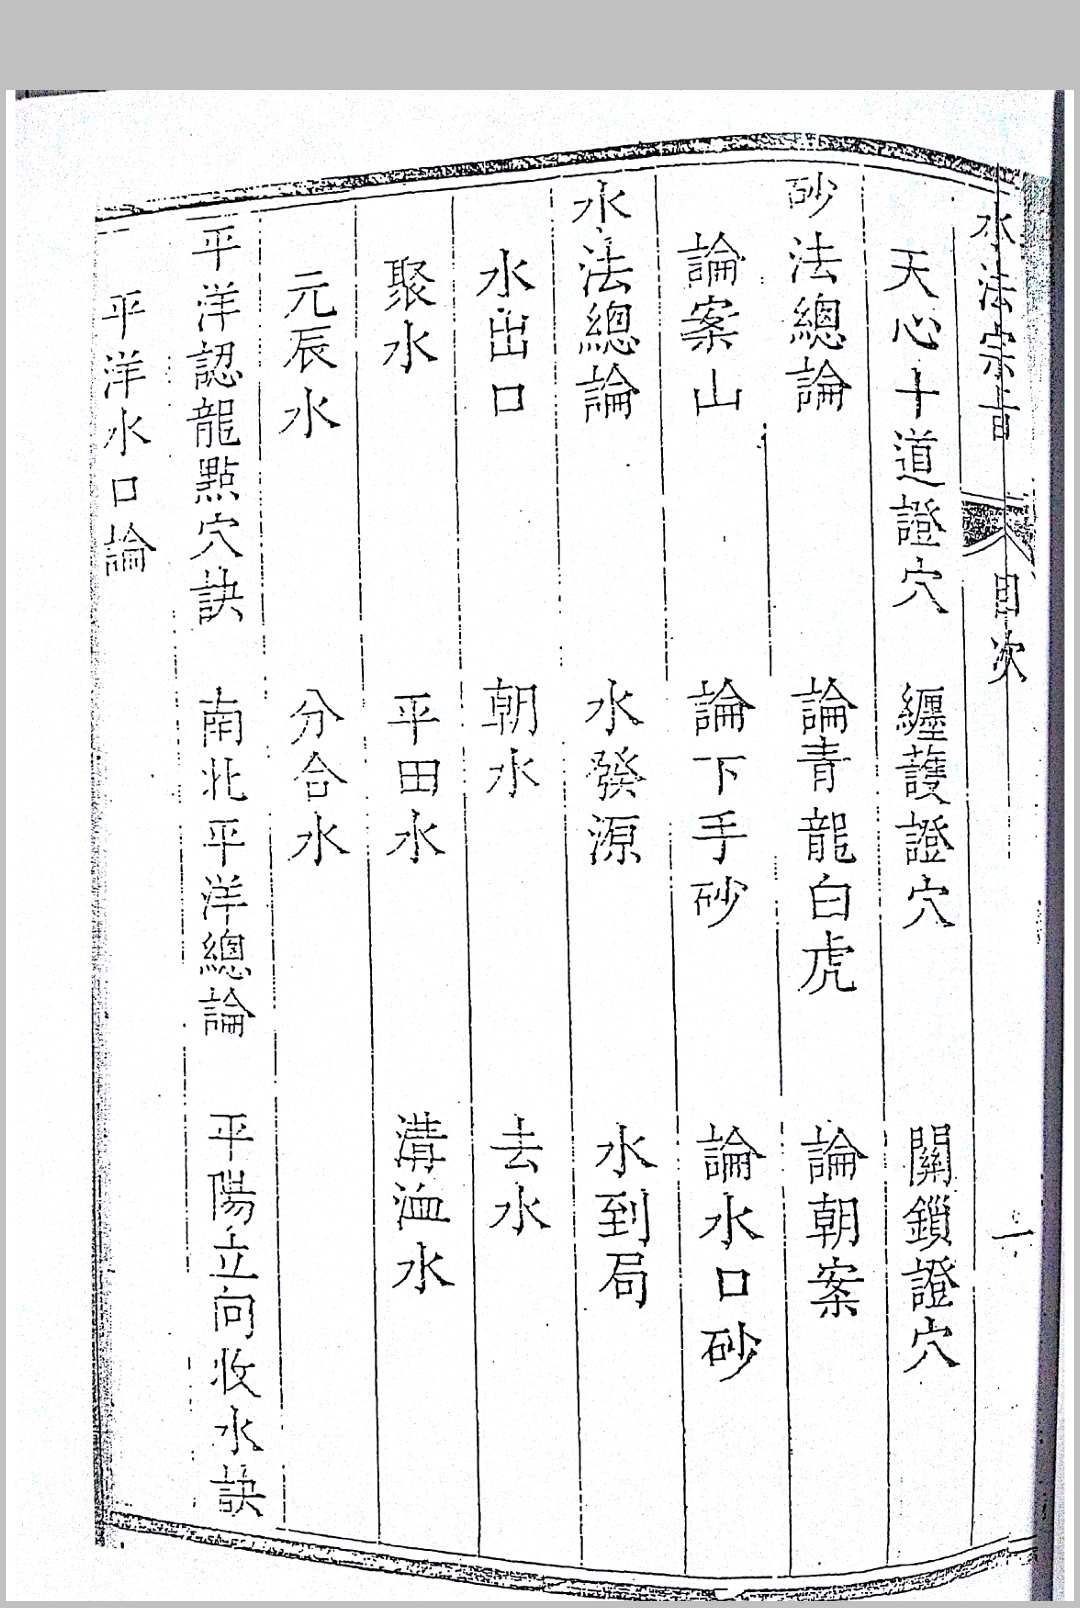 水法宗旨 目次 一
天心十道證穴 纏護證穴 關鎖證穴
砂法總論 論青龍白虎 論朝案
論案山 論下手砂 論水口砂
水法總論 水發源 水到局
水出口 朝水 去水
聚水 平田水 溝洫水
元辰水 分合水
平洋認龍點穴訣 南北平洋總論 平陽立向收水訣
平洋水口論